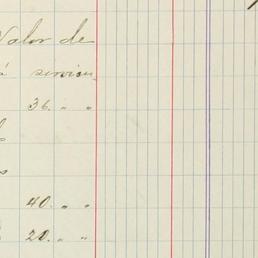 Valor de
servicio
36. " "
40. " "
20. " "